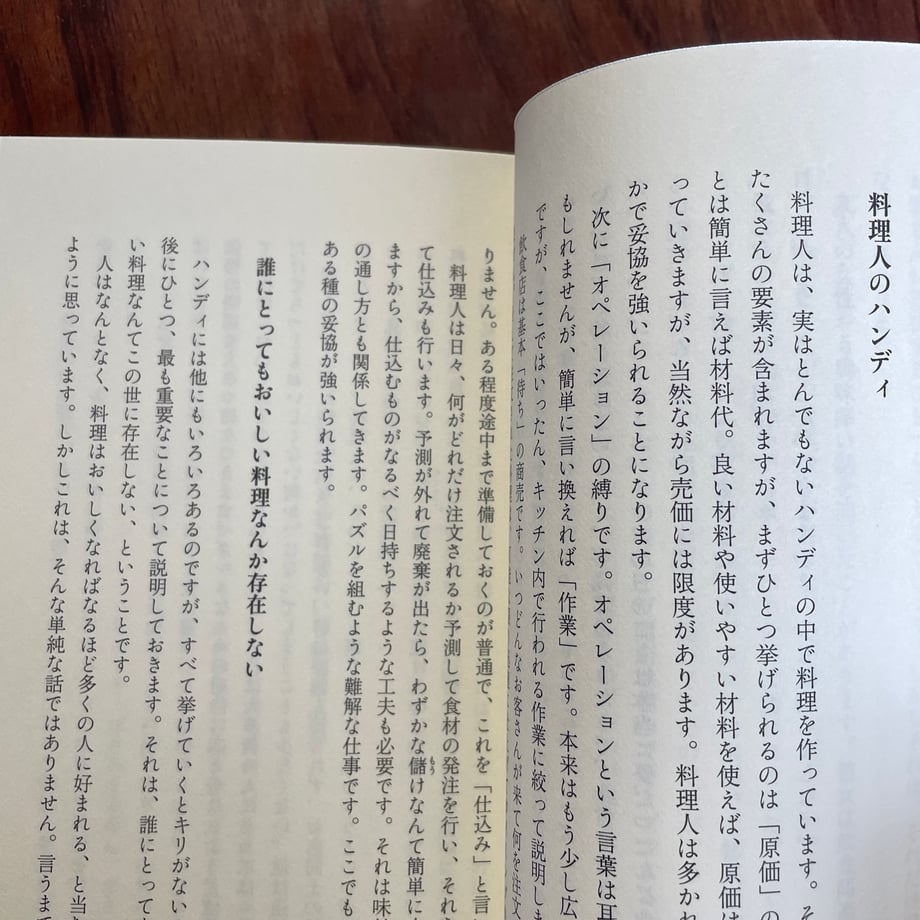 料理人のハンディ
料理人は、実はとんでもないハンディの中で料理を作っています。そ
たくさんの要素が含まれますが、まずひとつ挙げられるのは「原価」の
とは簡単に言えば材料代。良い材料や使いやすい材料を使えば、原価は
っていきますが、当然ながら売価には限度があります。料理人は多かれ
かで妥協を強いられることになります。
次に「オペレーション」の縛りです。オペレーションという言葉は耳
もしれませんが、簡単に言い換えれば「作業」です。本来はもう少し広
ですが、ここではいったん、キッチン内で行われる作業に絞って説明しま
飲食店は基本「待ち」の商売です。いつどんなお客さんが来て何を注文
りません。ある程度途中まで準備しておくのが普通で、これを「仕込み」と言
料理人は日々、何がどれだけ注文されるか予測して食材の発注を行い、それ
て仕込みも行います。予測が外れて廃棄が出たら、わずかな儲けなんて簡単に
ますから、仕込むものがなるべく日持ちするような工夫も必要です。それは味
の通し方とも関係してきます。パズルを組むような難解な仕事です。ここでも
ある種の妥協が強いられます。
誰にとってもおいしい料理なんか存在しない
ハンディには他にもいろいろあるのですが、すべて挙げていくとキリがない
後にひとつ、最も重要なことについて説明しておきます。それは、誰にとって
い料理なんてこの世に存在しない、ということです。
人はなんとなく、料理はおいしくなればなるほど多くの人に好まれる、と当
ように思っています。しかしこれは、そんな単純な話ではありません。言うまで